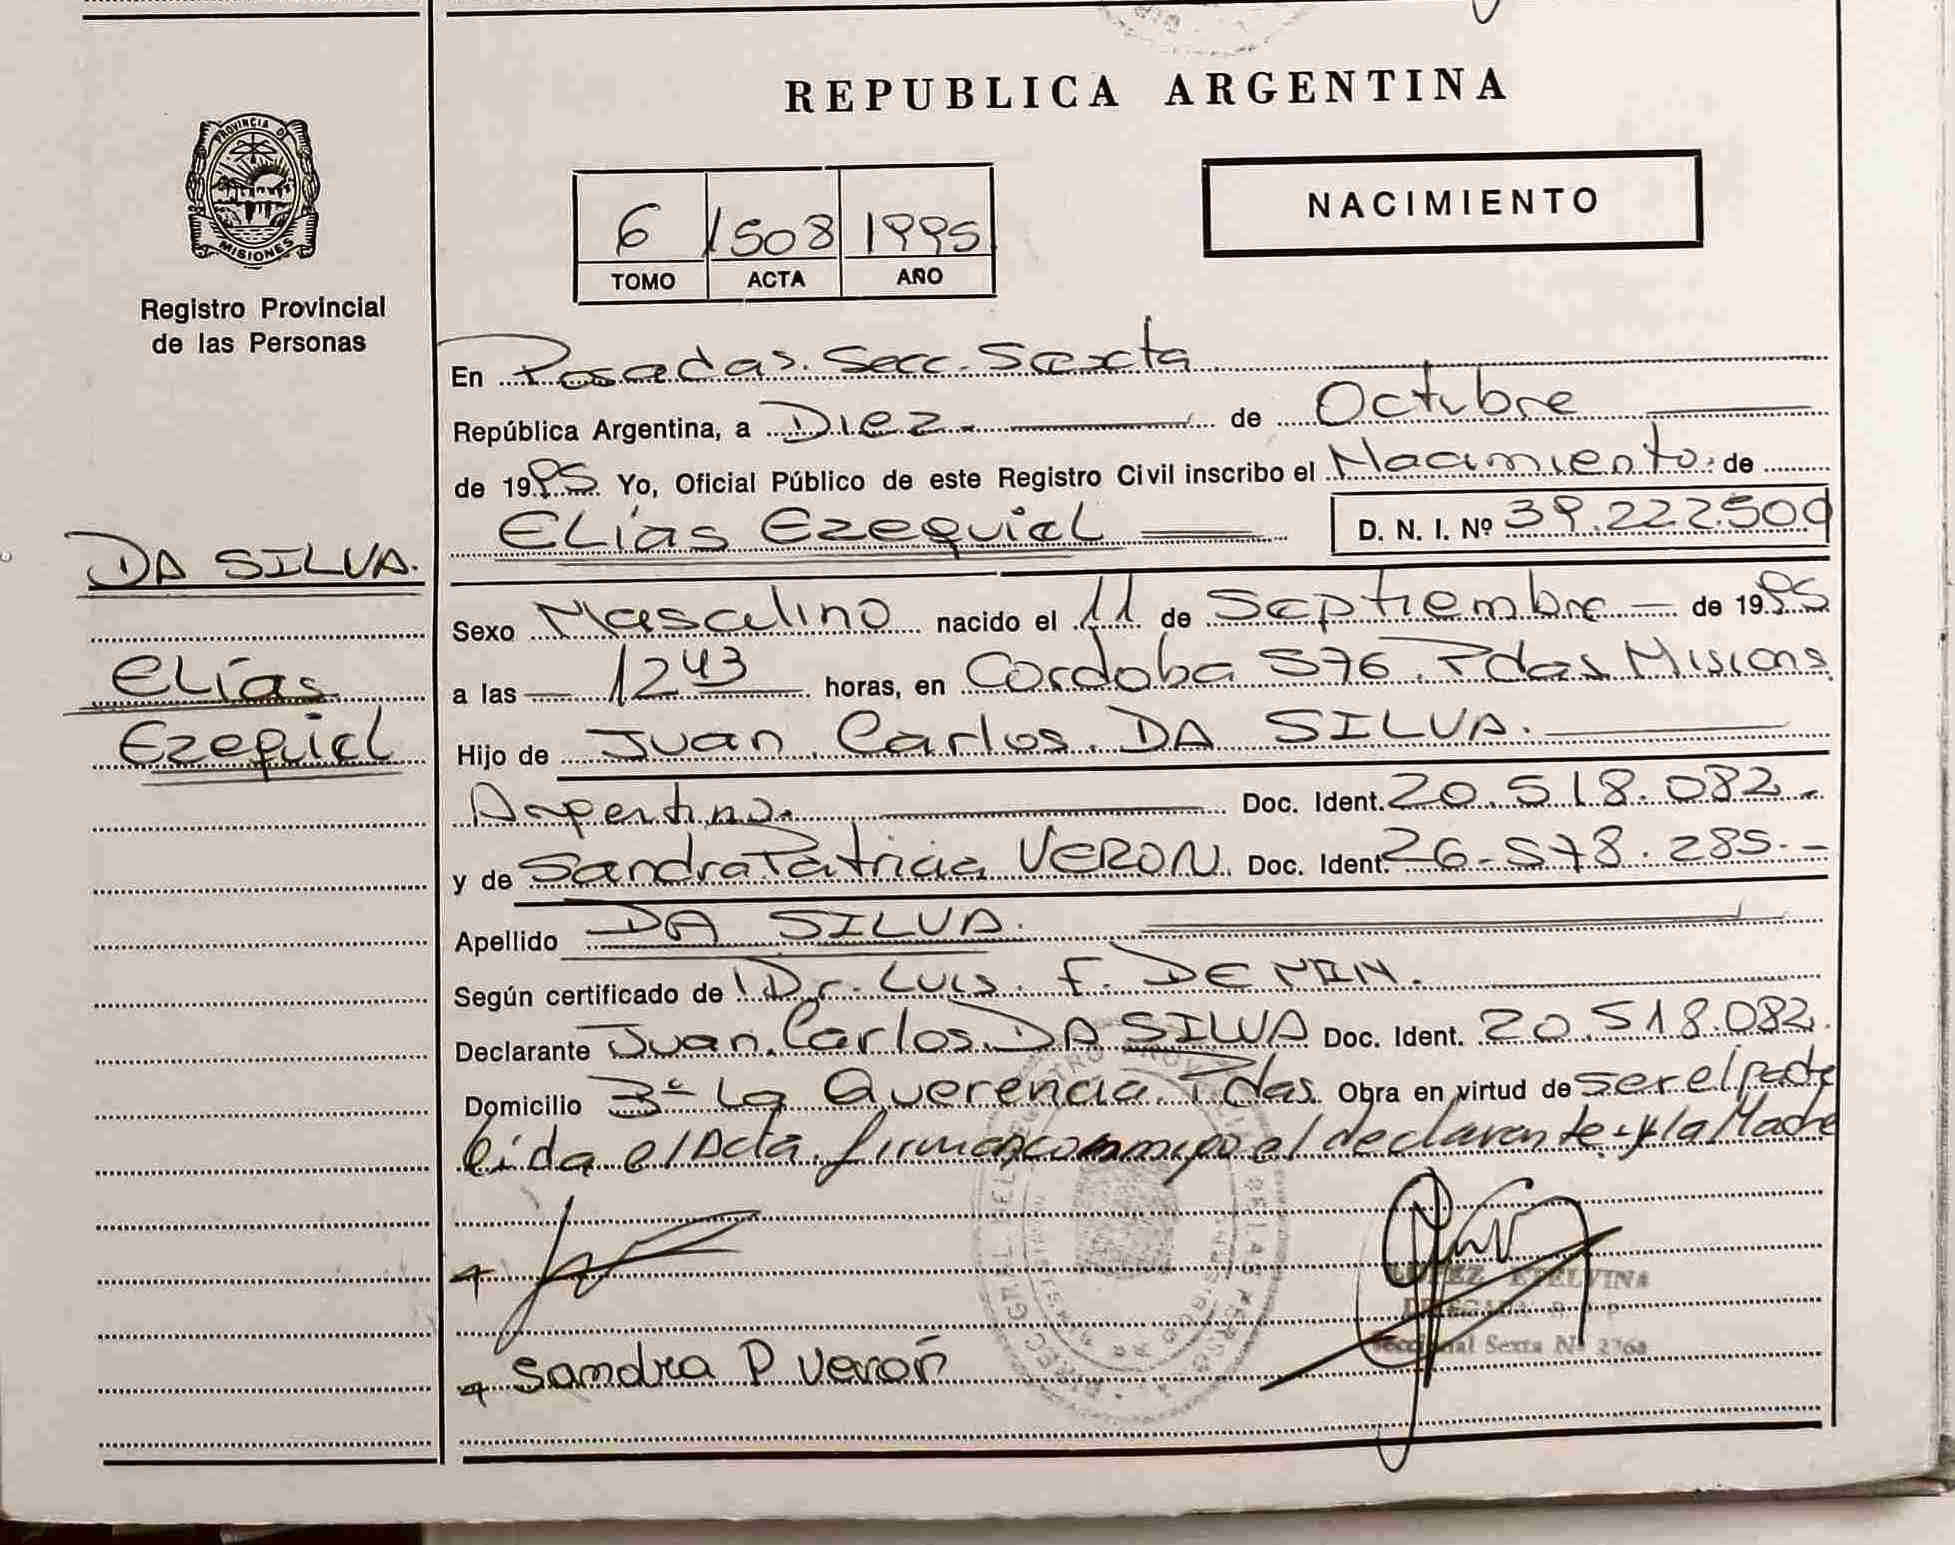 REPUBLICA ARGENTINA
PROVINCIA DE
MISIONES
Registro Provincial
de las Personas
NACIMIENTO
6 1508 1995
TOMO ACTA AÑO
En Posadas. Secc. Sexta
República Argentina, a Diez de Octubre
de 1995 Yo, Oficial Público de este Registro Civil inscribo el Nacimiento. de
Elías Ezequiel D. N. I. Nº 39.222.500
DA SILVA.
Elías
Ezequiel
Sexo Masculino nacido el 11 de Septiembre de 1995
a las 12 43 horas, en Cordoba 576. Pdas Misions
Hijo de Juan Carlos. DA SILVA.
Argentino. Doc. Ident. 20.518.082.-
y de Sandra Patricia VERON. Doc. Ident. 26.578.285.-
Apellido DA SILVA.
Según certificado de Dr. Luis. F.
Declarante Juan Carlos. DA SILVA Doc. Ident. 20.518.082.
Domicilio La Querencia. Pdas. Obra en virtud de ser el padre
leída el Acta. firman conmigo el declarante y la Madre
LOPEZ ETELVINA
DELEGADA R. P. P.
Seccional Sexta Nº 2768
Sandra P Veron